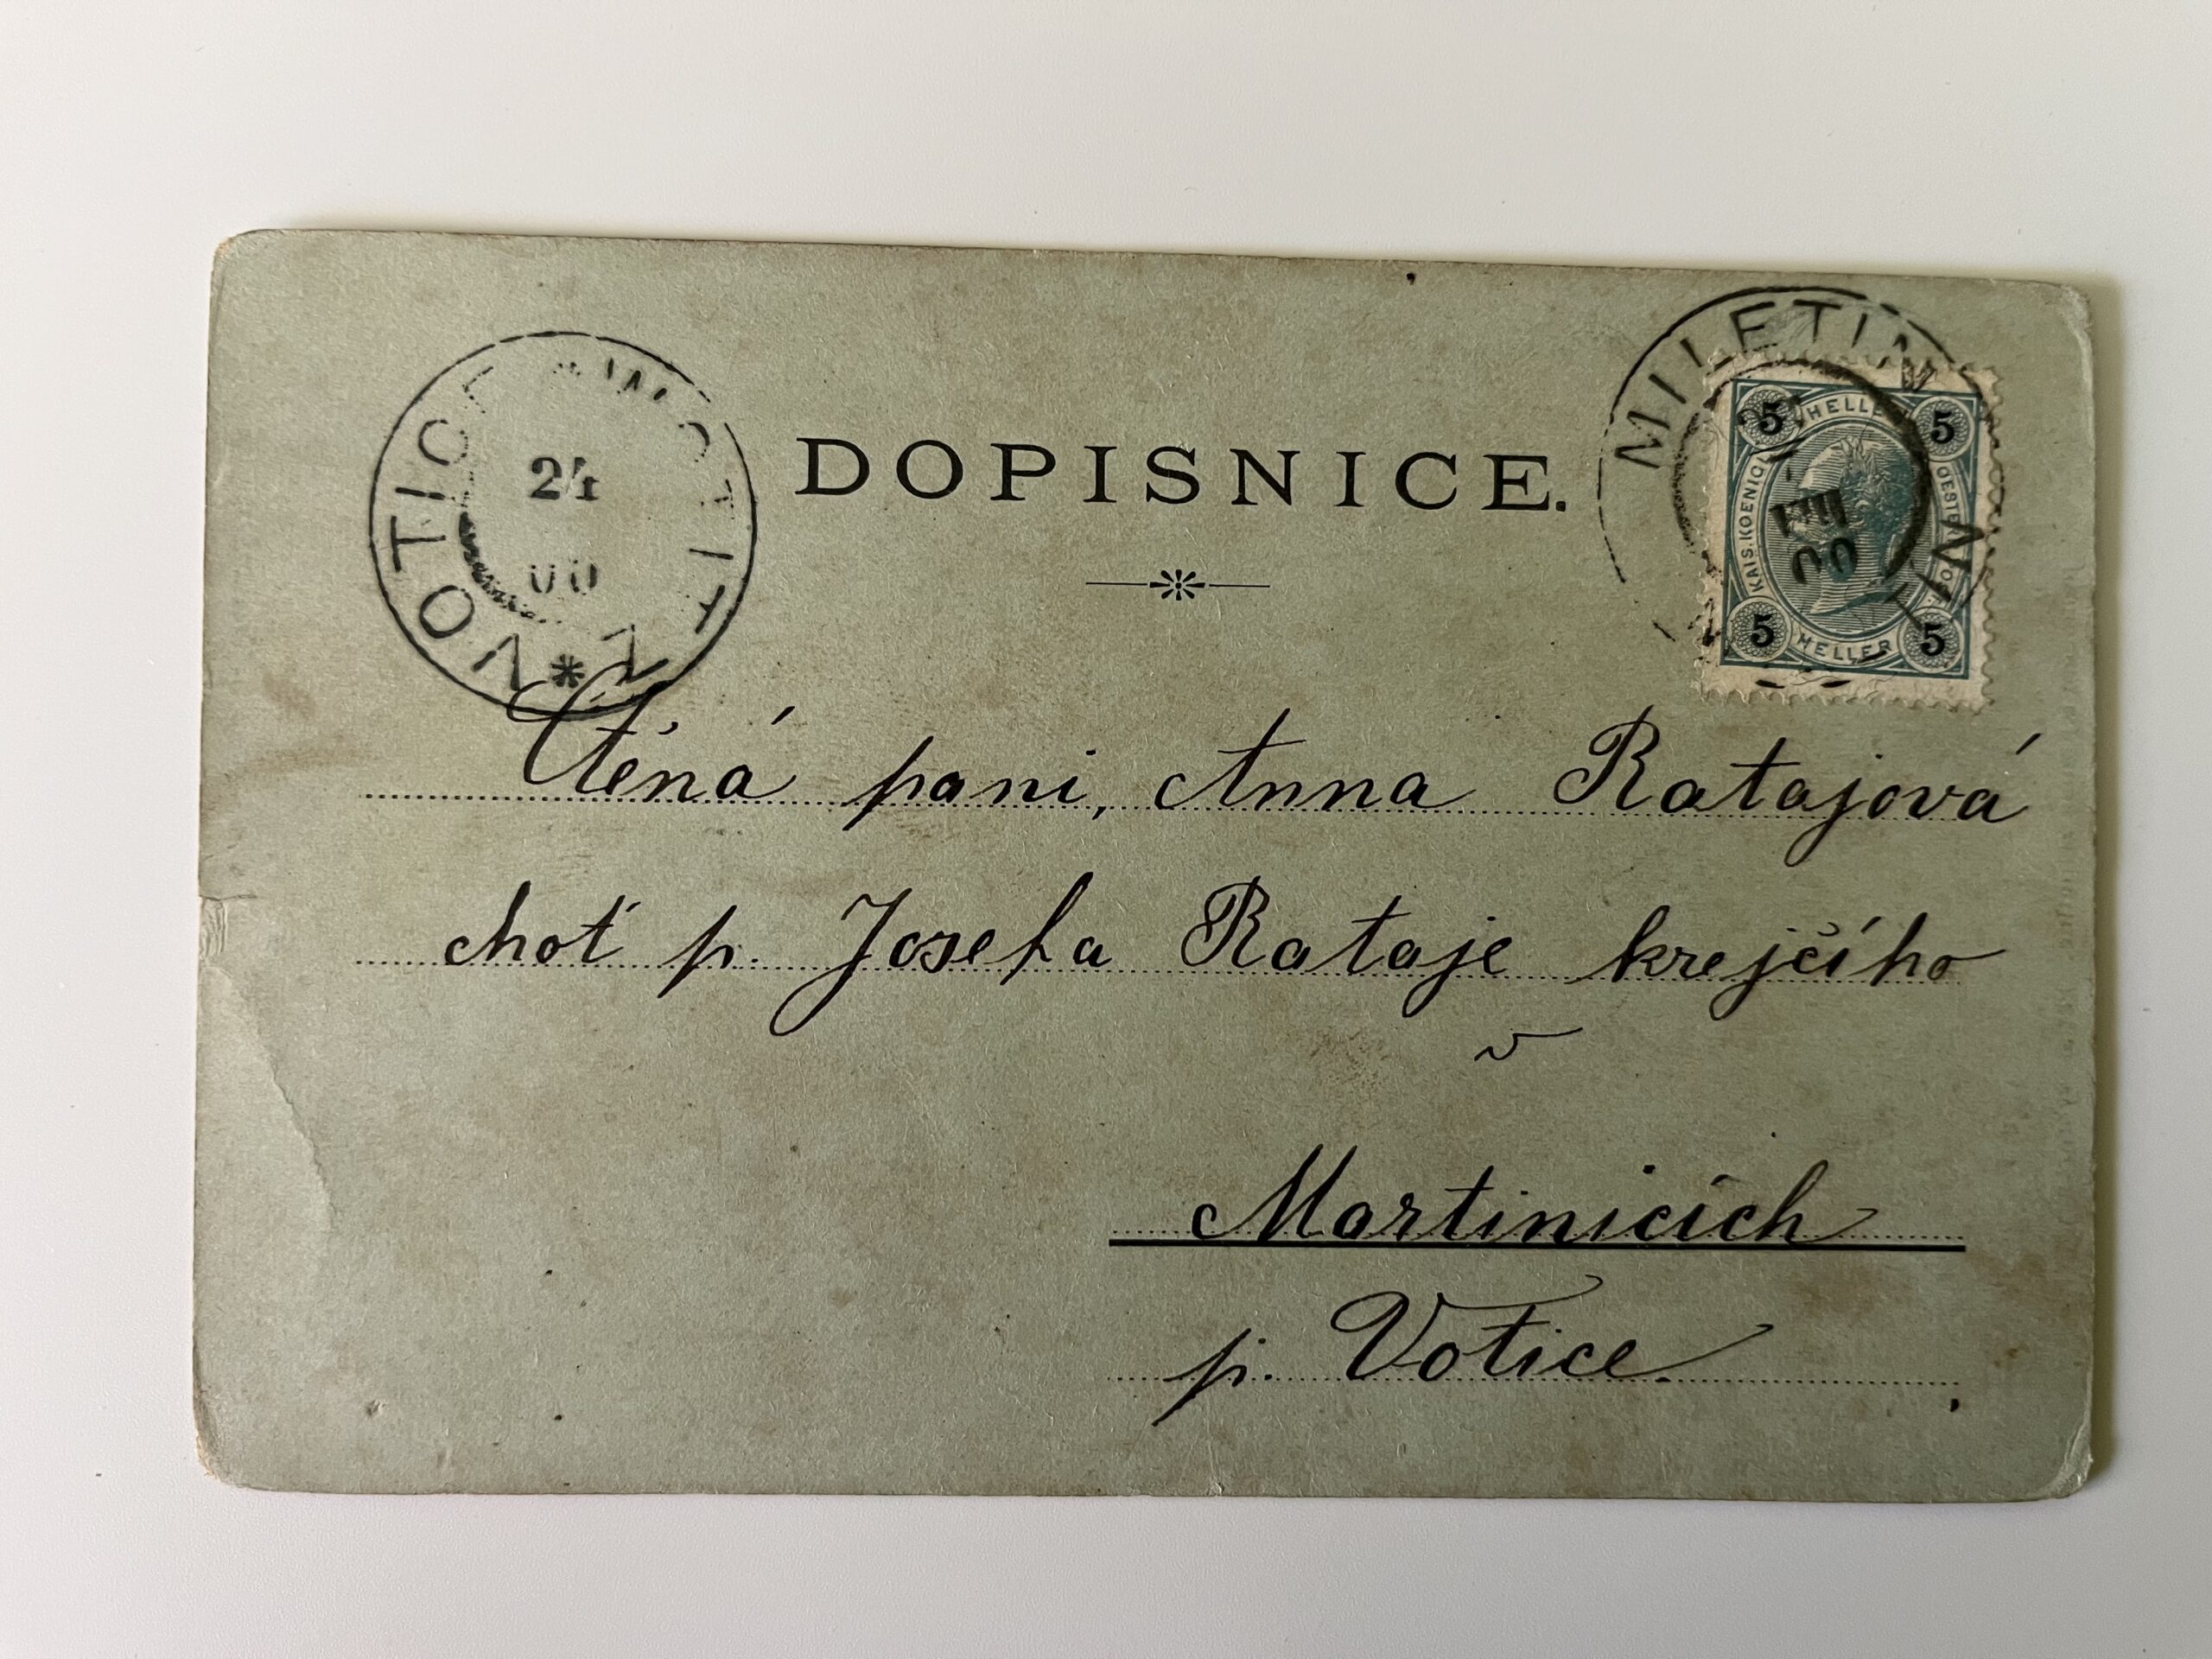 MILETIN
5 HELLER 5
KAIS. KOENIGL.
VIII
00
5 HELLER 5
VOTICE * WOTITZ *
24
00
DOPISNICE.
Ctěná pani, Anna Ratajová
choť p. Josefa Rataje krejčího
v
Martinicích
p. Votice.